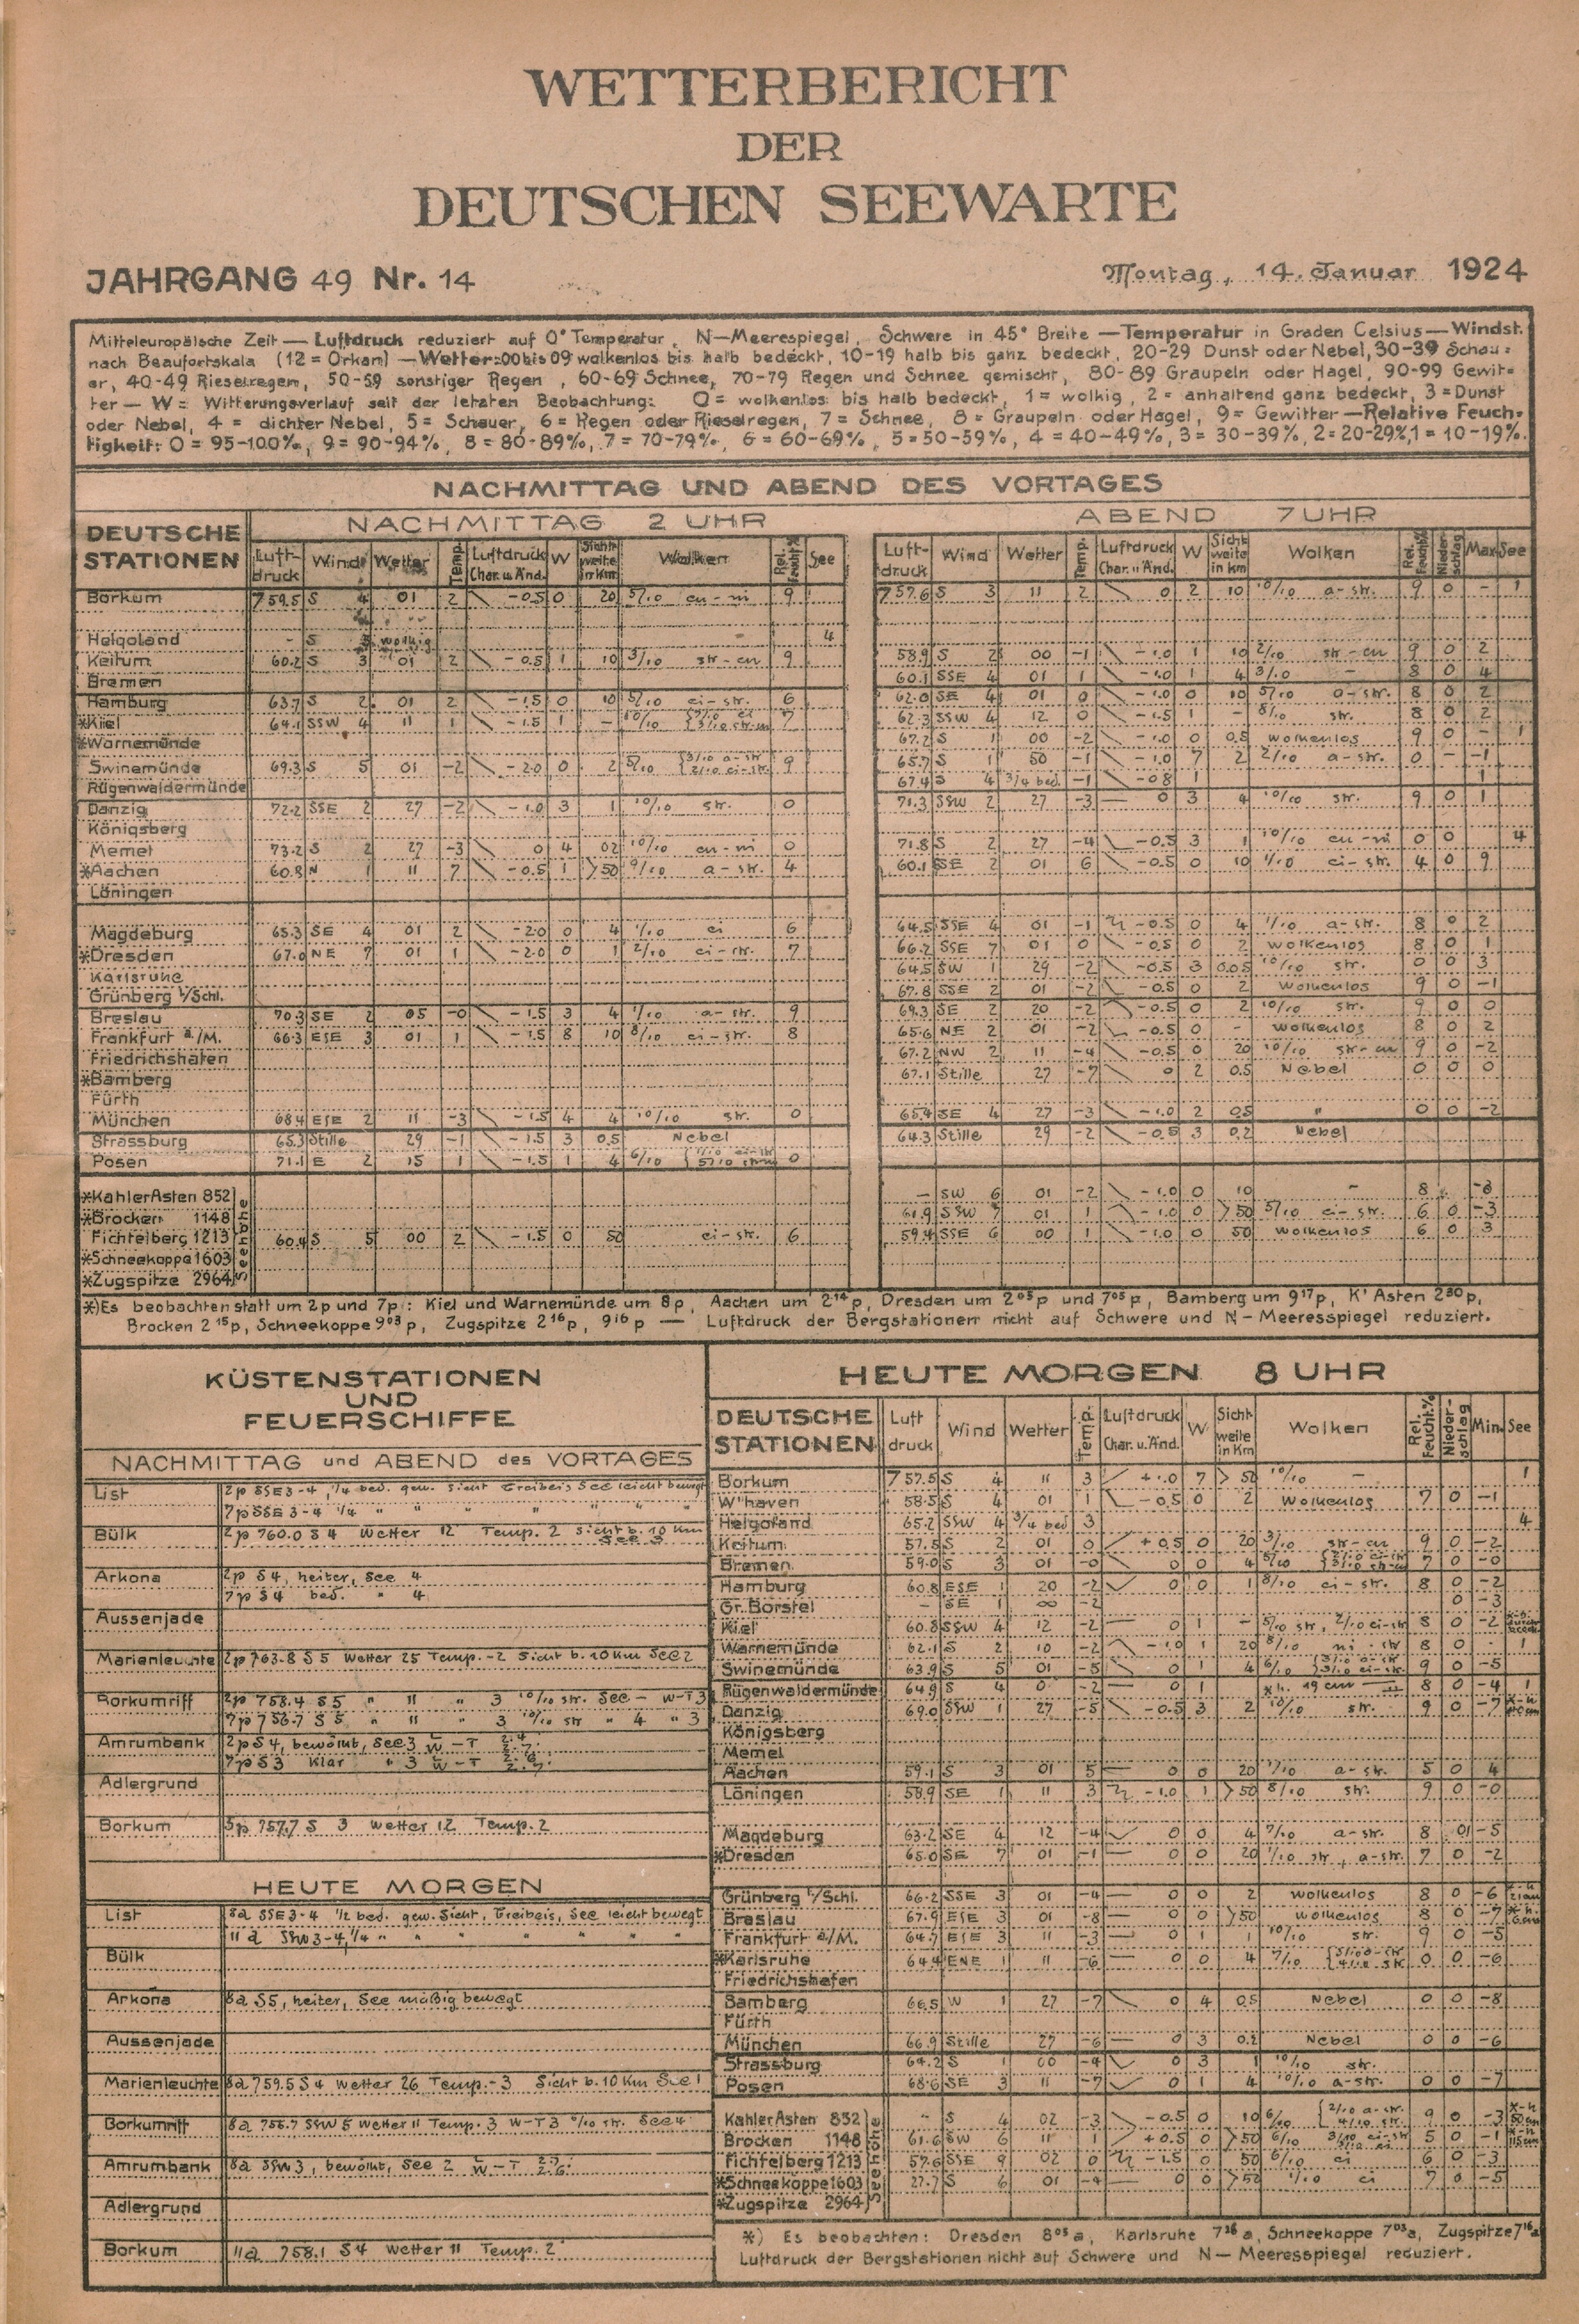 WETTERBERICHT
DER
DEUTSCHEN SEEWARTE
JAHRGANG 49 Nr. 14
Montag, 14. Januar 1924
Mitteleuropäische Zeit — Luftdruck reduziert auf 0° Temperatur, N—Meerespiegel, Schwere in 45° Breite — Temperatur in Graden Celsius — Windst.
nach Beaufortskala (12 = Orkan) — Wetter: 00 bis 09 wolkenlos bis halb bedeckt, 10-19 halb bis ganz bedeckt, 20-29 Dunst oder Nebel, 30-39 Schau-
er, 40-49 Rieselregen, 50-59 sonstiger Regen, 60-69 Schnee, 70-79 Regen und Schnee gemischt, 80-89 Graupeln oder Hagel, 90-99 Gewit-
ter — W = Witterungsverlauf seit der letzten Beobachtung: 0 = wolkenlos bis halb bedeckt, 1 = wolkig, 2 = anhaltend ganz bedeckt, 3 = Dunst
oder Nebel, 4 = dichter Nebel, 5 = Schauer, 6 = Regen oder Rieselregen, 7 = Schnee, 8 = Graupeln oder Hagel, 9 = Gewitter — Relative Feuch-
tigkeit: 0 = 95-100%, 9 = 90-94%, 8 = 80-89%, 7 = 70-79%, 6 = 60-69%, 5 = 50-59%, 4 = 40-49%, 3 = 30-39%, 2 = 20-29%, 1 = 10-19%.
NACHMITTAG UND ABEND DES VORTAGES
DEUTSCHE STATIONEN
NACHMITTAG 2 UHR
ABEND 7 UHR
Luft-druck Wind Wetter Temp. Luftdruck Char. u. Änd. W Sichtweite in Km Wolken Rel. Feucht.% See
Luft-druck Wind Wetter Temp. Luftdruck Char. u. Änd. W Sichtweite in km Wolken Rel. Feucht.% Niederschlag Max. See
Borkum 759.5 S 4 01 2 -0.5 0 20 5/10 cu-ni 9 757.6 S 3 11 2 0 2 10 10/10 a-str. 9 0 - 1
Helgoland - S 3 wolkig 4
Keitum 60.2 S 3 01 2 -0.5 1 10 3/10 str-cu 9 58.9 S 2 00 -1 -1.0 1 10 2/10 str-cu 9 0 2
Bremen 60.1 SSE 4 01 1 -1.0 1 4 3/10 - 8 0 4
Hamburg 63.7 S 2 01 2 -1.5 0 10 5/10 ci-str. 6 62.0 SE 4 01 0 -1.0 0 10 5/10 a-str. 8 0 2
*Kiel 64.1 SSW 4 11 1 -1.5 1 - 7 62.3 SSW 4 12 0 -1.5 1 - 8/10 str. 8 0 2
*Warnemünde 67.2 S 1 00 -2 -1.0 0 0.5 wolkenlos 9 0 - 1
Swinemünde 69.3 S 5 01 -2 -2.0 0 2 5/10 3/10 a-str 2/10 ci-str. 9 65.7 S 1 50 -1 -1.0 7 2 2/10 a-str. 0 - -1
Rügenwaldermünde 67.4 S 4 3/4 bed. -1 -0.8 1 1
Danzig 72.2 SSE 2 27 -2 -1.0 3 1 10/10 str. 0 71.3 SSW 2 27 -3 0 3 4 10/10 str. 9 0 1
Königsberg
Memel 73.2 S 2 27 -3 0 4 02 10/10 cu-ni 0 71.8 S 2 27 -4 -0.5 3 1 10/10 cu-ni 0 0 4
*Aachen 60.8 N 1 11 7 -0.5 1 >50 9/10 a-str. 4 60.1 SE 2 01 6 -0.5 0 10 1/10 ci-str. 4 0 9
Löningen
Magdeburg 65.3 SE 4 01 2 -2.0 0 4 1/10 ci 6 64.5 SSE 4 01 -1 -0.5 0 4 1/10 a-str. 8 0 2
*Dresden 67.0 NE 7 01 1 -2.0 0 1 2/10 ci-str. 7 66.2 SSE 7 01 0 -0.5 0 2 wolkenlos 8 0 1
Karlsruhe 64.5 SW 1 29 -2 -0.5 3 0.05 10/10 str. 0 0 3
Grünberg i/Schl. 67.8 SSE 2 01 -2 -0.5 0 2 wolkenlos 9 0 -1
Breslau 70.3 SE 2 05 -0 -1.5 3 4 1/10 a-str. 9 69.3 SE 2 20 -2 -0.5 0 2 10/10 str. 9 0 0
Frankfurt a./M. 66.3 ESE 3 01 1 -1.5 8 10 8/10 ci-str. 8 65.6 NE 2 01 -2 -0.5 0 - wolkenlos 8 0 2
Friedrichshafen 67.2 NW 2 11 -4 -0.5 0 20 10/10 str-cu 9 0 -2
*Bamberg 67.1 Stille 27 -7 0 2 0.5 Nebel 0 0 0
Fürth
München 68.4 ESE 2 11 -3 -1.5 4 4 10/10 str. 0 65.4 SE 4 27 -3 -1.0 2 0.5 " 0 0 -2
Strassburg 65.3 Stille 29 -1 -1.5 3 0.5 Nebel 64.3 Stille 29 -2 -0.5 3 0.2 Nebel
Posen 71.1 E 2 15 1 -1.5 1 4 6/10 0
Seehöhe
*Kahler Asten 852 — SW 6 01 -2 -1.0 0 10 - 8 -3
*Brocken 1148 61.9 SSW 7 01 1 -1.0 0 >50 5/10 ci-str. 6 0 -3
Fichtelberg 1213 60.4 S 5 00 2 -1.5 0 50 ci-str. 6 59.4 SSE 6 00 1 -1.0 0 50 wolkenlos 6 0 3
*Schneekoppe 1603
*Zugspitze 2964
*) Es beobachten statt um 2p und 7p: Kiel und Warnemünde um 8p, Aachen um 2 14 p, Dresden um 2 05 p und 7 05 p, Bamberg um 9 17 p, K' Asten 2 30 p,
Brocken 2 15 p, Schneekoppe 9 03 p, Zugspitze 2 16 p, 9 16 p — Luftdruck der Bergstationen nicht auf Schwere und N—Meeresspiegel reduziert.
KÜSTENSTATIONEN
UND
FEUERSCHIFFE
NACHMITTAG und ABEND des VORTAGES
List 2p SSE 3-4, 1/4 bed. gew. Sicht Treibeis See leicht bewegt
7p SSE 3-4 1/4 " " " " " "
Bülk 2p 760.0 S 4 Wetter 12 Temp. 2 Sicht b. 10 Km See 3
Arkona 2p S 4, heiter, See 4
7p S 4 bed. " 4
Aussenjade
Marienleuchte 2p 763.8 S 5 Wetter 25 Temp. -2 Sicht b. 10 Km See 2
Borkumriff 2p 758.4 S 5 " 11 " 3 10/10 str. See - W-T 3
7p 756.7 S 5 " 11 " 3 10/10 str " 4 " 3
Amrumbank 2p S 4, bewölkt, See 3 W-T
7p S 3 klar " 3 W-T
Adlergrund
Borkum 5p 757.7 S 3 Wetter 12 Temp. 2
HEUTE MORGEN
List 8a SSE 3-4 1/2 bed. gew. Sicht, Treibeis, See leicht bewegt
11a SSW 3-4, 1/4 " " " " " " "
Bülk
Arkona 8a S 5, heiter, See mäßig bewegt
Aussenjade
Marienleuchte 8a 759.5 S 4 Wetter 26 Temp. -3 Sicht b. 10 Km See 1
Borkumriff 8a 756.7 SSW 5 Wetter 11 Temp. 3 W-T 3 str. See 4
Amrumbank 8a SSW 3, bewölkt, See 2 W-T
Adlergrund
Borkum 11a 758.1 S 4 Wetter 11 Temp. 2
HEUTE MORGEN 8 UHR
DEUTSCHE STATIONEN Luft druck Wind Wetter Temp. Luftdruck Char. u. Änd. W Sichtweite in Km Wolken Rel. Feucht.% Niederschlag Min. See
Borkum 757.5 S 4 11 3 +1.0 7 >50 10/10 - 1
W'haven 58.5 S 4 01 1 -0.5 0 2 wolkenlos 7 0 -1
Helgoland 65.2 SSW 4 3/4 bed 3 4
Keitum 57.5 S 2 01 0 +0.5 0 20 3/10 str-cu 9 0 -2
Bremen 59.0 S 3 01 -0 0 0 4 5/10 7 0 -0
Hamburg 60.8 ESE 1 20 -2 0 0 1 8/10 ci-str. 8 0 -2
Gr. Borstel - SE 1 ∞ -2 0 -3
Kiel 60.8 SSW 4 12 -2 0 1 - 5/10 str, 2/10 ci-str 8 0 -2
Warnemünde 62.1 S 2 10 -2 -1.0 1 20 8/10 ni-str 8 0 - 1
Swinemünde 63.9 S 5 01 -5 0 1 4 6/10 3/10 a-str 3/10 ci-str. 9 0 -5
Rügenwaldermünde 64.9 S 4 0 -2 0 1 *h. 19 cm 8 0 -4 1
Danzig 69.0 SSW 1 27 -5 -0.5 3 2 10/10 str. 9 0 -7
Königsberg
Memel
Aachen 59.1 S 3 01 5 0 0 20 1/10 a-str. 5 0 4
Löningen 58.9 SE 1 11 3 -1.0 1 >50 8/10 str. 9 0 -0
Magdeburg 63.2 SE 4 12 -4 0 0 4 7/10 a-str. 8 01 -5
*Dresden 65.0 SE 7 01 -1 0 0 20 1/10 str, a-str. 7 0 -2
Grünberg i/Schl. 66.2 SSE 3 01 -4 0 0 2 wolkenlos 8 0 -6
Breslau 67.9 ESE 3 01 -8 0 0 >50 wolkenlos 8 0 -7
Frankfurt a/M. 64.7 ESE 3 11 -3 0 1 1 10/10 str 9 0 -5
*Karlsruhe 64.4 ENE 1 11 -6 0 0 4 7/10 0 0 -6
Friedrichshafen
Bamberg 66.5 W 1 27 -7 0 4 0.5 Nebel 0 0 -8
Fürth
München 66.9 Stille 27 -6 0 3 0.2 Nebel 0 0 -6
Strassburg 64.2 S 1 00 -4 0 3 1 10/10 str.
Posen 68.6 SE 3 11 -7 0 1 4 10/10 a-str. 0 0 -7
Seehöhe
Kahler Asten 852 " S 4 02 -3 -0.5 0 10 6/10 2/10 a-str. 4/10 str. 9 0 -3
Brocken 1148 61.6 SW 6 11 1 +0.5 0 >50 6/10 5 0 -1
Fichtelberg 1213 57.6 SSE 9 02 0 -1.5 0 50 6/10 ci 6 0 -3
*Schneekoppe 1603 27.7 S 6 01 -4 0 0 >50 1/10 ci 7 0 -5
*Zugspitze 2964
*) Es beobachten: Dresden 8 05 a, Karlsruhe 7 36 a, Schneekoppe 7 03 a, Zugspitze 7 16 a
Luftdruck der Bergstationen nicht auf Schwere und N—Meeresspiegel reduziert.